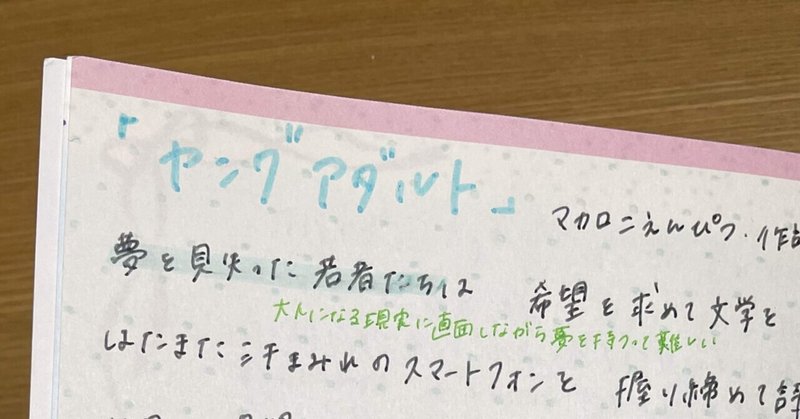 「ヤングアダルト」
マカロニえんぴつ・作詞
夢を見失った若者たちは 希望を求めて文学を
大人になる現実に直面しながら夢を持つって難しい
はたまた汗まみれのスマートフォンを 握り締めて